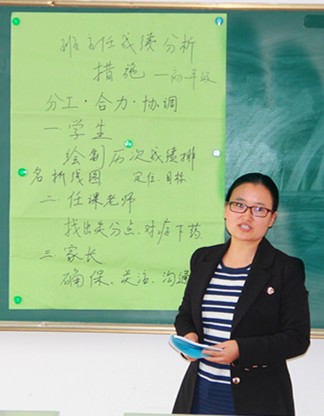 班主任成绩分析
措施 —高一年级
分工·合力·协调
一 学生
绘制历次成绩排
名折线图 定位.目标
二 任课老师
找出失分点、对症下药
三 家长
确保、关注、沟通